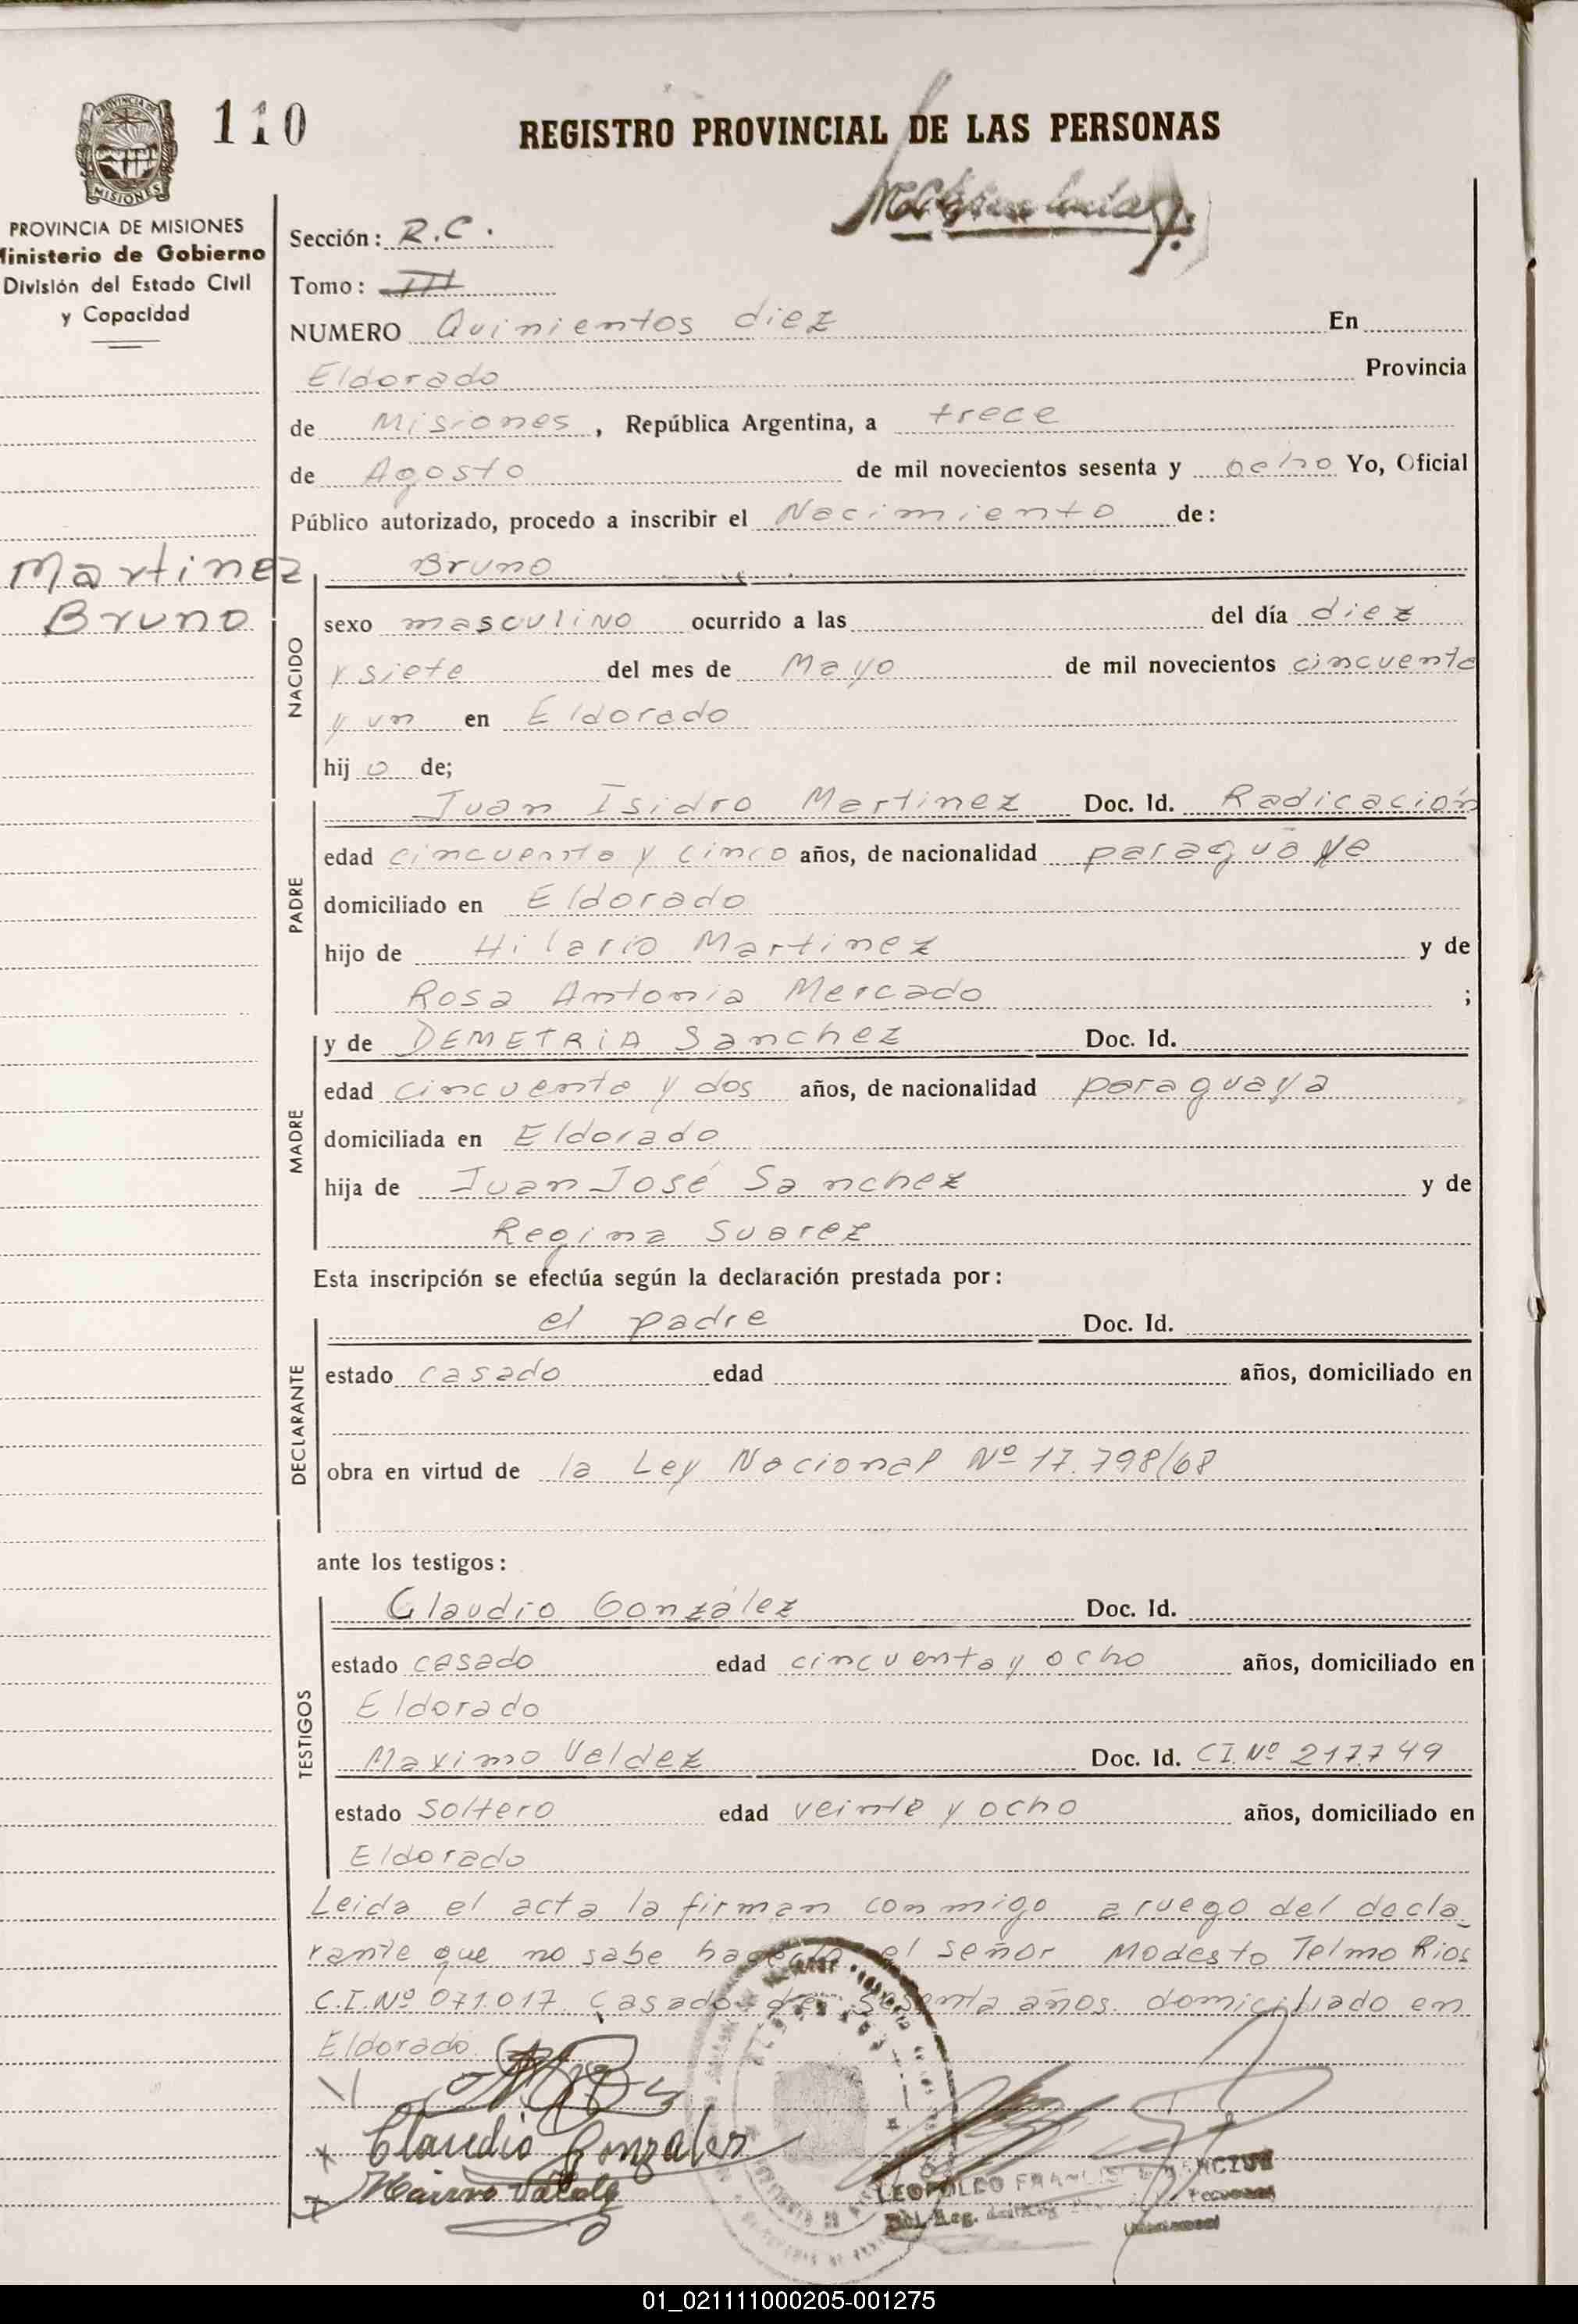 110
REGISTRO PROVINCIAL DE LAS PERSONAS
PROVINCIA DE MISIONES
Ministerio de Gobierno
División del Estado Civil
y Capacidad
Sección: R.C.
Tomo: III
NUMERO Quinientos diez En
Eldorado Provincia
de Misiones, República Argentina, a trece
de Agosto de mil novecientos sesenta y ocho Yo, Oficial
Público autorizado, procedo a inscribir el Nacimiento de:
Martinez
Bruno
NACIDO
Bruno
sexo masculino ocurrido a las del día diez
y siete del mes de Mayo de mil novecientos cincuenta
y un en Eldorado
hijo de;
PADRE
Juan Isidro Martinez Doc. Id. Radicación
edad cincuenta y cinco años, de nacionalidad paraguaya
domiciliado en Eldorado
hijo de Hilario Martinez y de
Rosa Antonia Mercado ;
MADRE
y de DEMETRIA Sanchez Doc. Id.
edad cincuenta y dos años, de nacionalidad paraguaya
domiciliada en Eldorado
hija de Juan José Sanchez y de
Regina Suarez
Esta inscripción se efectúa según la declaración prestada por:
DECLARANTE
el padre Doc. Id.
estado casado edad años, domiciliado en
obra en virtud de la Ley Nacional Nº 17.798/68
ante los testigos:
TESTIGOS
Claudio González Doc. Id.
estado casado edad cincuenta y ocho años, domiciliado en
Eldorado
Maximo Valdez Doc. Id. C.I. Nº 217.749
estado soltero edad veinte y ocho años, domiciliado en
Eldorado
Leida el acta la firman conmigo a ruego del decla_
rante que no sabe hacerlo el señor Modesto Telmo Rios
C.I. Nº 071.017. Casado de sesenta años. domiciliado en
Eldorado.
Claudio Gonzalez
LEOPOLDO
01_021111000205-001275